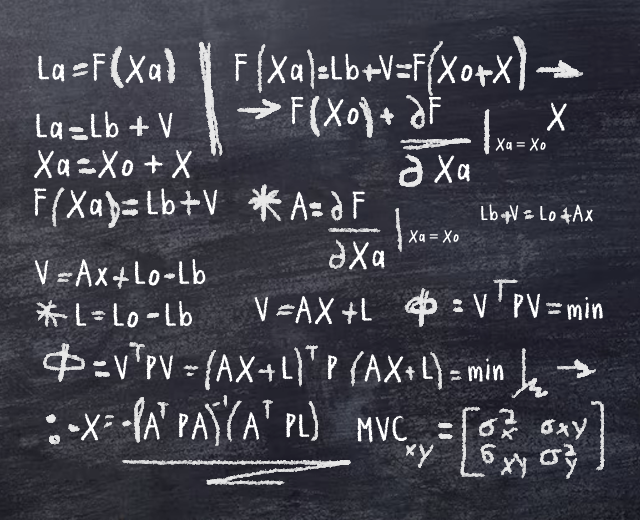 La = F(Xa) | F(Xa) = Lb + V = F(Xo + X) →
→ F(Xo) + ∂F / ∂Xa | Xa = Xo X
La = Lb + V
Xa = Xo + X
F(Xa) = Lb + V
* A = ∂F / ∂Xa | Xa = Xo
Lb + V = Lo + Ax
V = Ax + Lo - Lb
* L = Lo - Lb
V = AX + L
ϕ = V^T PV = min
ϕ = V^T PV = (AX + L)^T P (AX + L) = min →
∴ X = -(A^T PA)^-1 (A^T PL)
MVC_xy = [σ²x σxy
σxy σ²y]